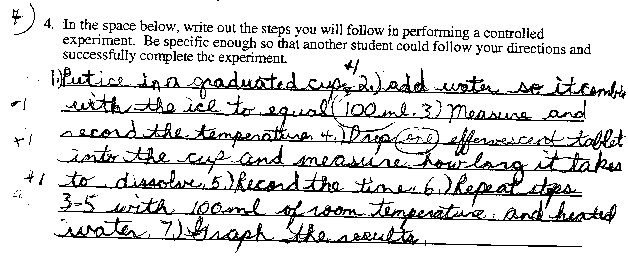 4) 4. In the space below, write out the steps you will follow in performing a controlled
experiment. Be specific enough so that another student could follow your directions and
successfully complete the experiment.
+1
1.) Put ice in a graduated cup. 2.) add water so it combi
with the ice to equal 100 ml. 3) Measure and
+1 record the temperature 4.) Drop one effervescent tablet
into the cup and measure how long it takes
+1 to dissolve. 5.) Record the time. 6.) Repeat steps
3-5 with 100 ml of room temperature and heated
water. 7.) Graph the results.